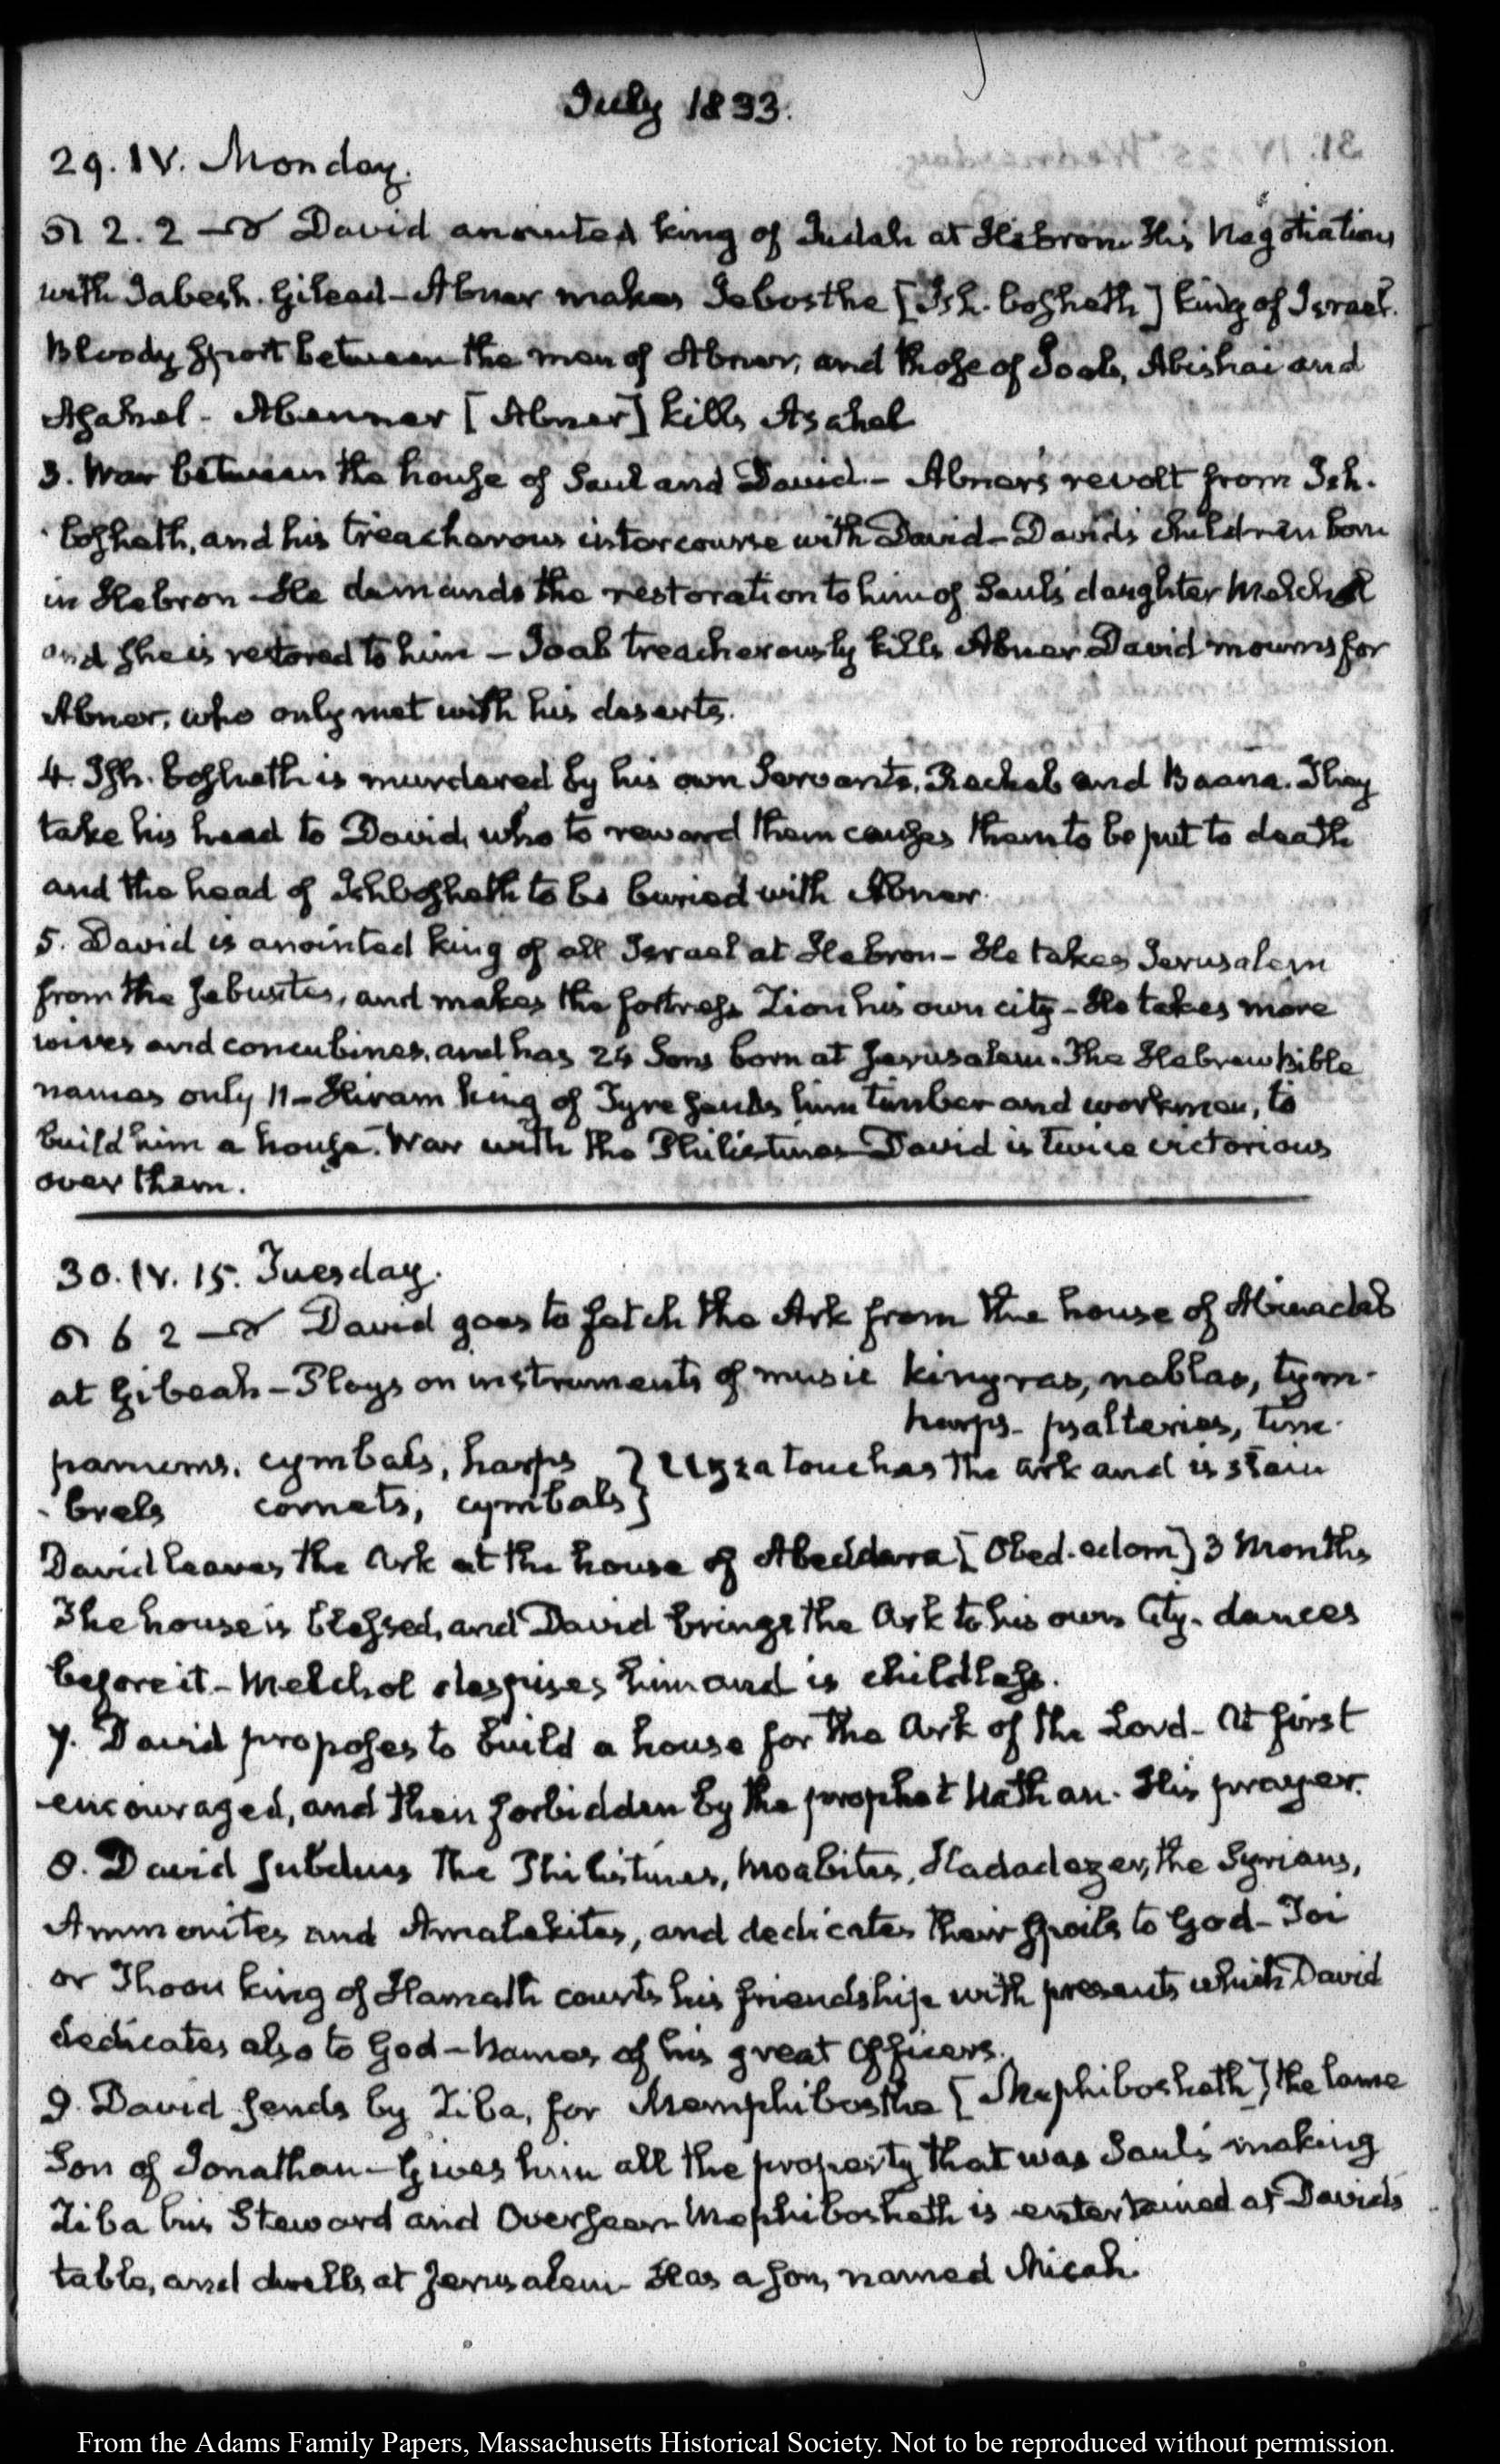 July 1833.
29. IV. Monday.
2. 2 David anointed king of Judah at Hebron His Negotiations
with Jabesh. Gilead – Abner makes Jebosthe [Ish. bosheth] king of Israel.
Bloody sport between the men of Abner, and those of Joab, Abishai and
Asahel - Abenner [Abner] kills Asahel
3. War between the house of Saul and David. – Abner's revolt from Ish.
bosheth, and his treacherous intercourse with David – David's children born
in Hebron – He demands the restoration to him of Saul's daughter Melchol
and she is restored to him – Joab treacherously kills Abner David mourns for
Abner, who only met with his deserts.
4. Ish. bosheth is murdered by his own Servants, Rechab and Baana. They
take his head to David, who to reward them causes them to be put to death
and the head of Ishbosheth to be buried with Abner.
5. David is anointed king of all Israel at Hebron – He takes Jerusalem
from the Jebusites, and makes the fortress Zion his own city – He takes more
wives and concubines, and has 24 Sons born at Jerusalem. The Hebrew Bible
names only 11 – Hiram king of Tyre sends him timber and workmen, to
build him a house. War with the Philistines David is twice victorious
over them.
30. IV. 15. Tuesday.
6 2 David goes to fetch the Ark from the house of Abinadab
at Gibeah – Plays on instruments of music kinyras, nablas, tym-
harps - psalteries, tim-
panums, cymbals, harps } Uzza touches the Ark and is slain
- brels cornets, cymbals }
David leaves the Ark at the house of Abeddara [Obed. edom] 3 Months
The house is blessed, and David brings the Ark to his own City - dances
before it – Melchol despises him and is childless.
7. David proposes to build a house for the Ark of the Lord – At first
encouraged, and then forbidden by the prophet Nathan. His prayer.
8. David subdues the Philistines, Moabites, Hadadezer, the Syrians,
Ammonites and Amalekites, and dedicates their spoils to God – Toi
or Thoou king of Hamath courts his friendship with presents which David
dedicates also to God – Names of his great Officers.
9. David sends by Ziba, for Memphibosthe [Mephibosheth] the lame
Son of Jonathan – Gives him all the property that was Saul's making
Ziba his Steward and Overseer Mephibosheth is entertained at David's
table, and dwells at Jerusalem – Has a son, named Micah.
From the Adams Family Papers, Massachusetts Historical Society. Not to be reproduced without permission.